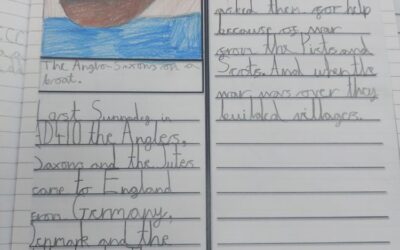 The Anglo-Saxons on a
boat.
Last Sunnday, in
AD410 the Angles,
Saxons and the Jutes
came to England
from Germany,
Denmark and the
asked them for help
because of war
from the Picts and
Scots. And when the
war was over they
builded villages.